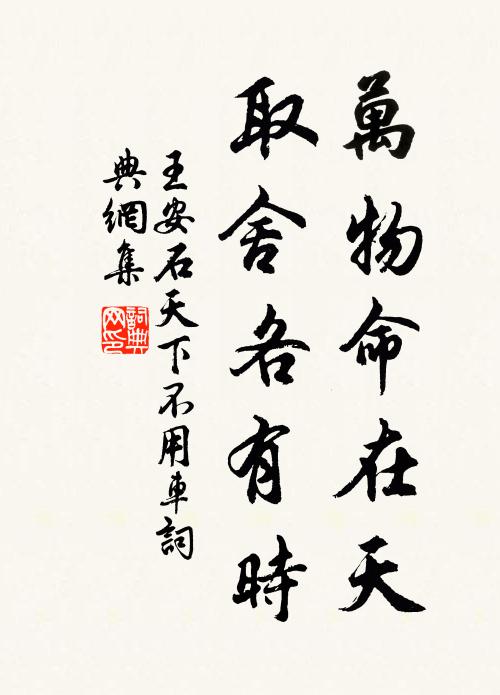 萬物命在天
取舍各有時
王安石天下不用車詞
典網集
詞典
网印